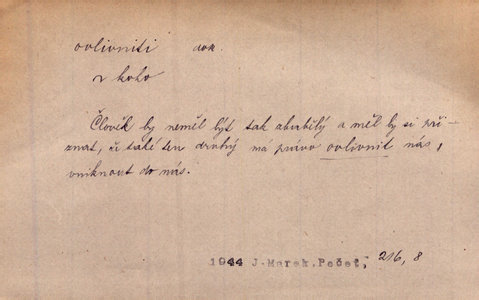 ovlivniti dok.
2 koho
Člověk by neměl být tak ahubělý a měl by si při-
znat, či také ten druhý má právo ovlivnit nás,
vniknout do nás.
1944 J.Marek.Pečeť, 216, 8